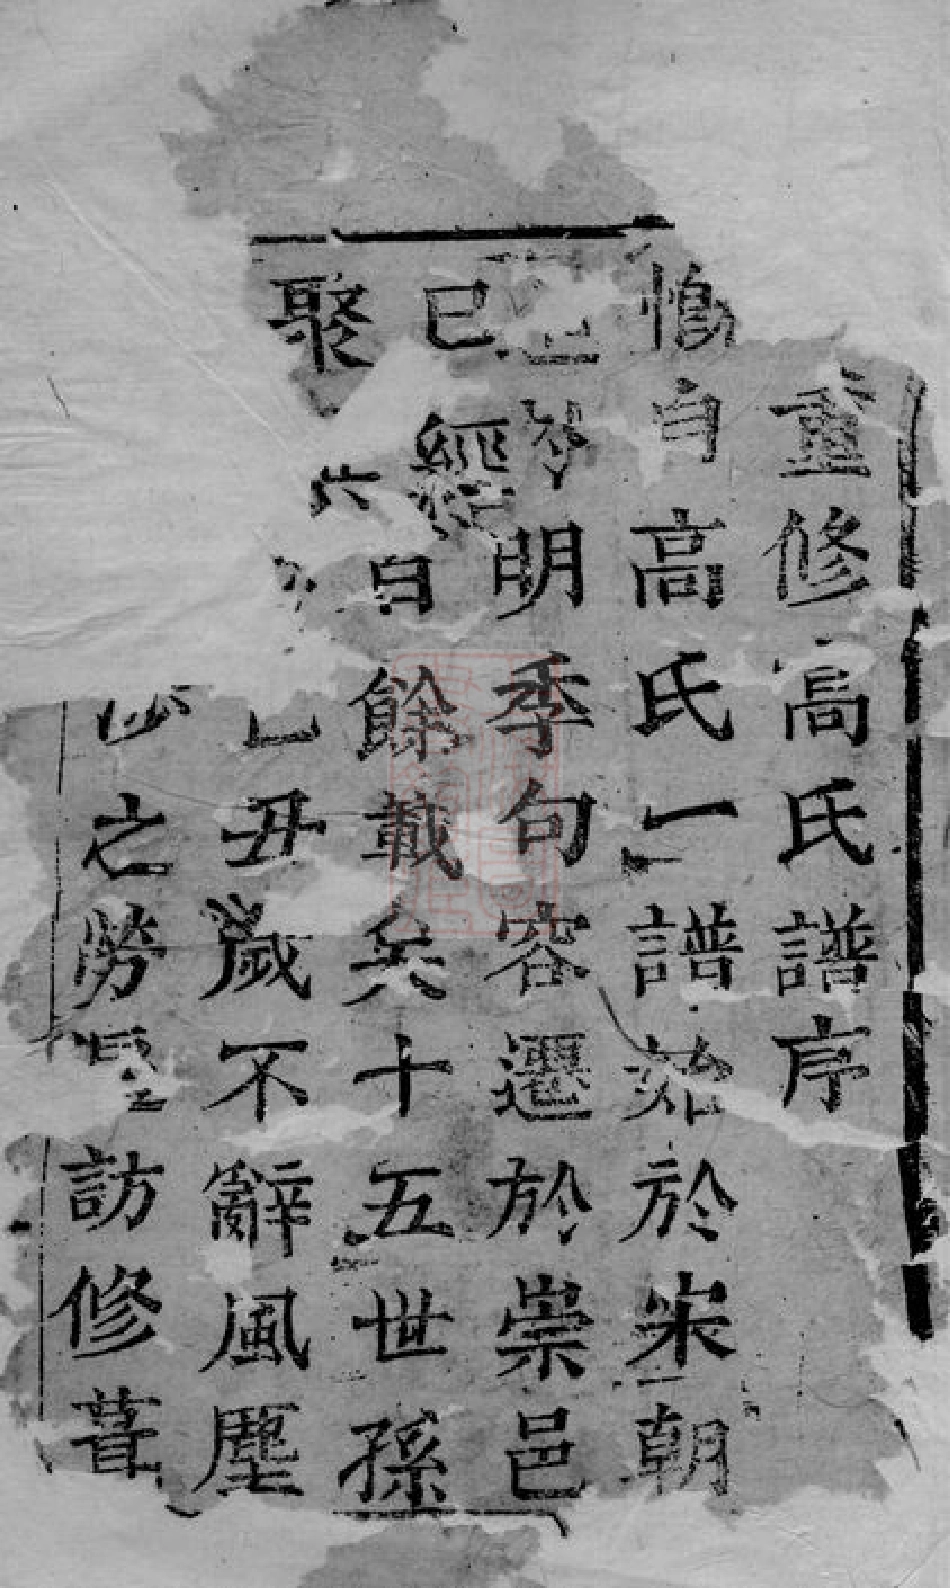 重修高氏譜序
自高氏一譜始於宋朝
明季句容遷於崇邑
已經百餘載矣十五世孫
聚丑歲不辭風塵
之勞訪修葺